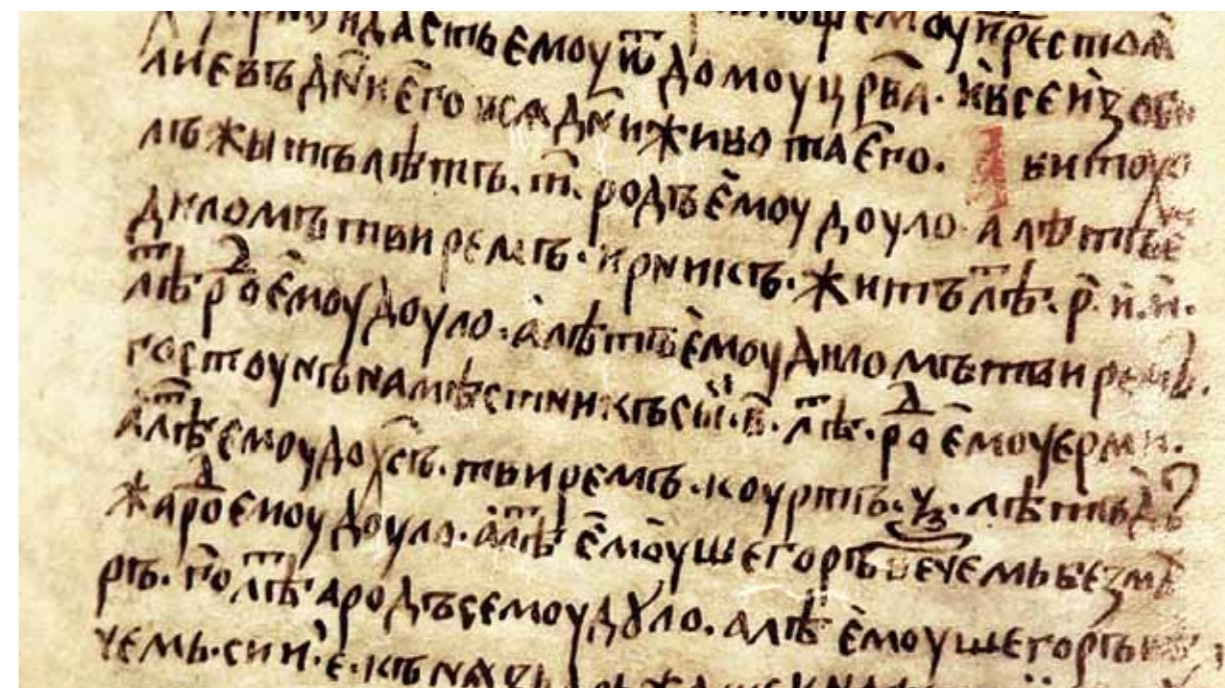 и дасть емоу ѿ домоу црв҃а · и҆ всеи҆ зоби
лиевъ дн҃и ег҃о и са дн҃и живота ег҃о · Авитохо
лъ жытъ лѣтъ · т҃ · родъ е҆моу доуло · а лѣтъ е
диломъ твиремъ · ирникъ · житъ лѣт · р҃ · и҆ · и҆ ·
лѣт род е҆моу доуло · а҆ лѣтъ е҆моу дило мъ твиремъ ·
гостоунъ намѣстникъ сы҆и · в҃ · лѣт · род е҆моу ерми ·
а҆ лѣт емоу дохсъ · твиремъ · коуртъ · ꙁ҃ · лѣтъ дъ
жа род емоу доуло · а҆ лѣт е҆мо҆у шегоръ вечемь безме
ръ · г҃ · лѣт а родъ семоу дꙋло · а лѣ е҆моу шегоръ ве
чемь · сии · е҃ · кънѧꙁь